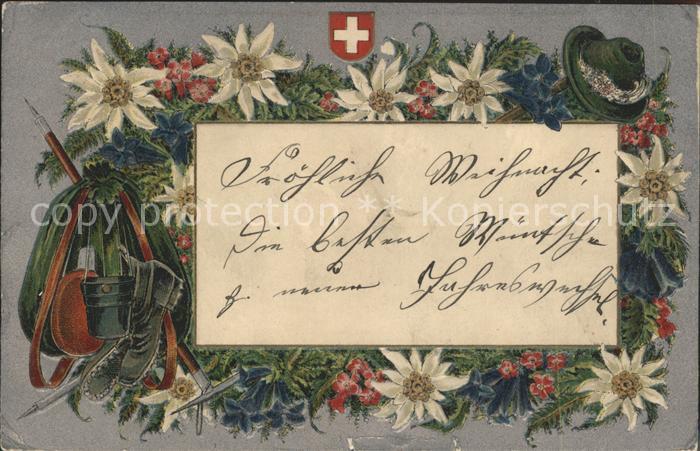 Fröhliche Weihnacht;
die besten Wüntsche
z. neuen Jahreswechsel.
copy protection * Kopierschutz